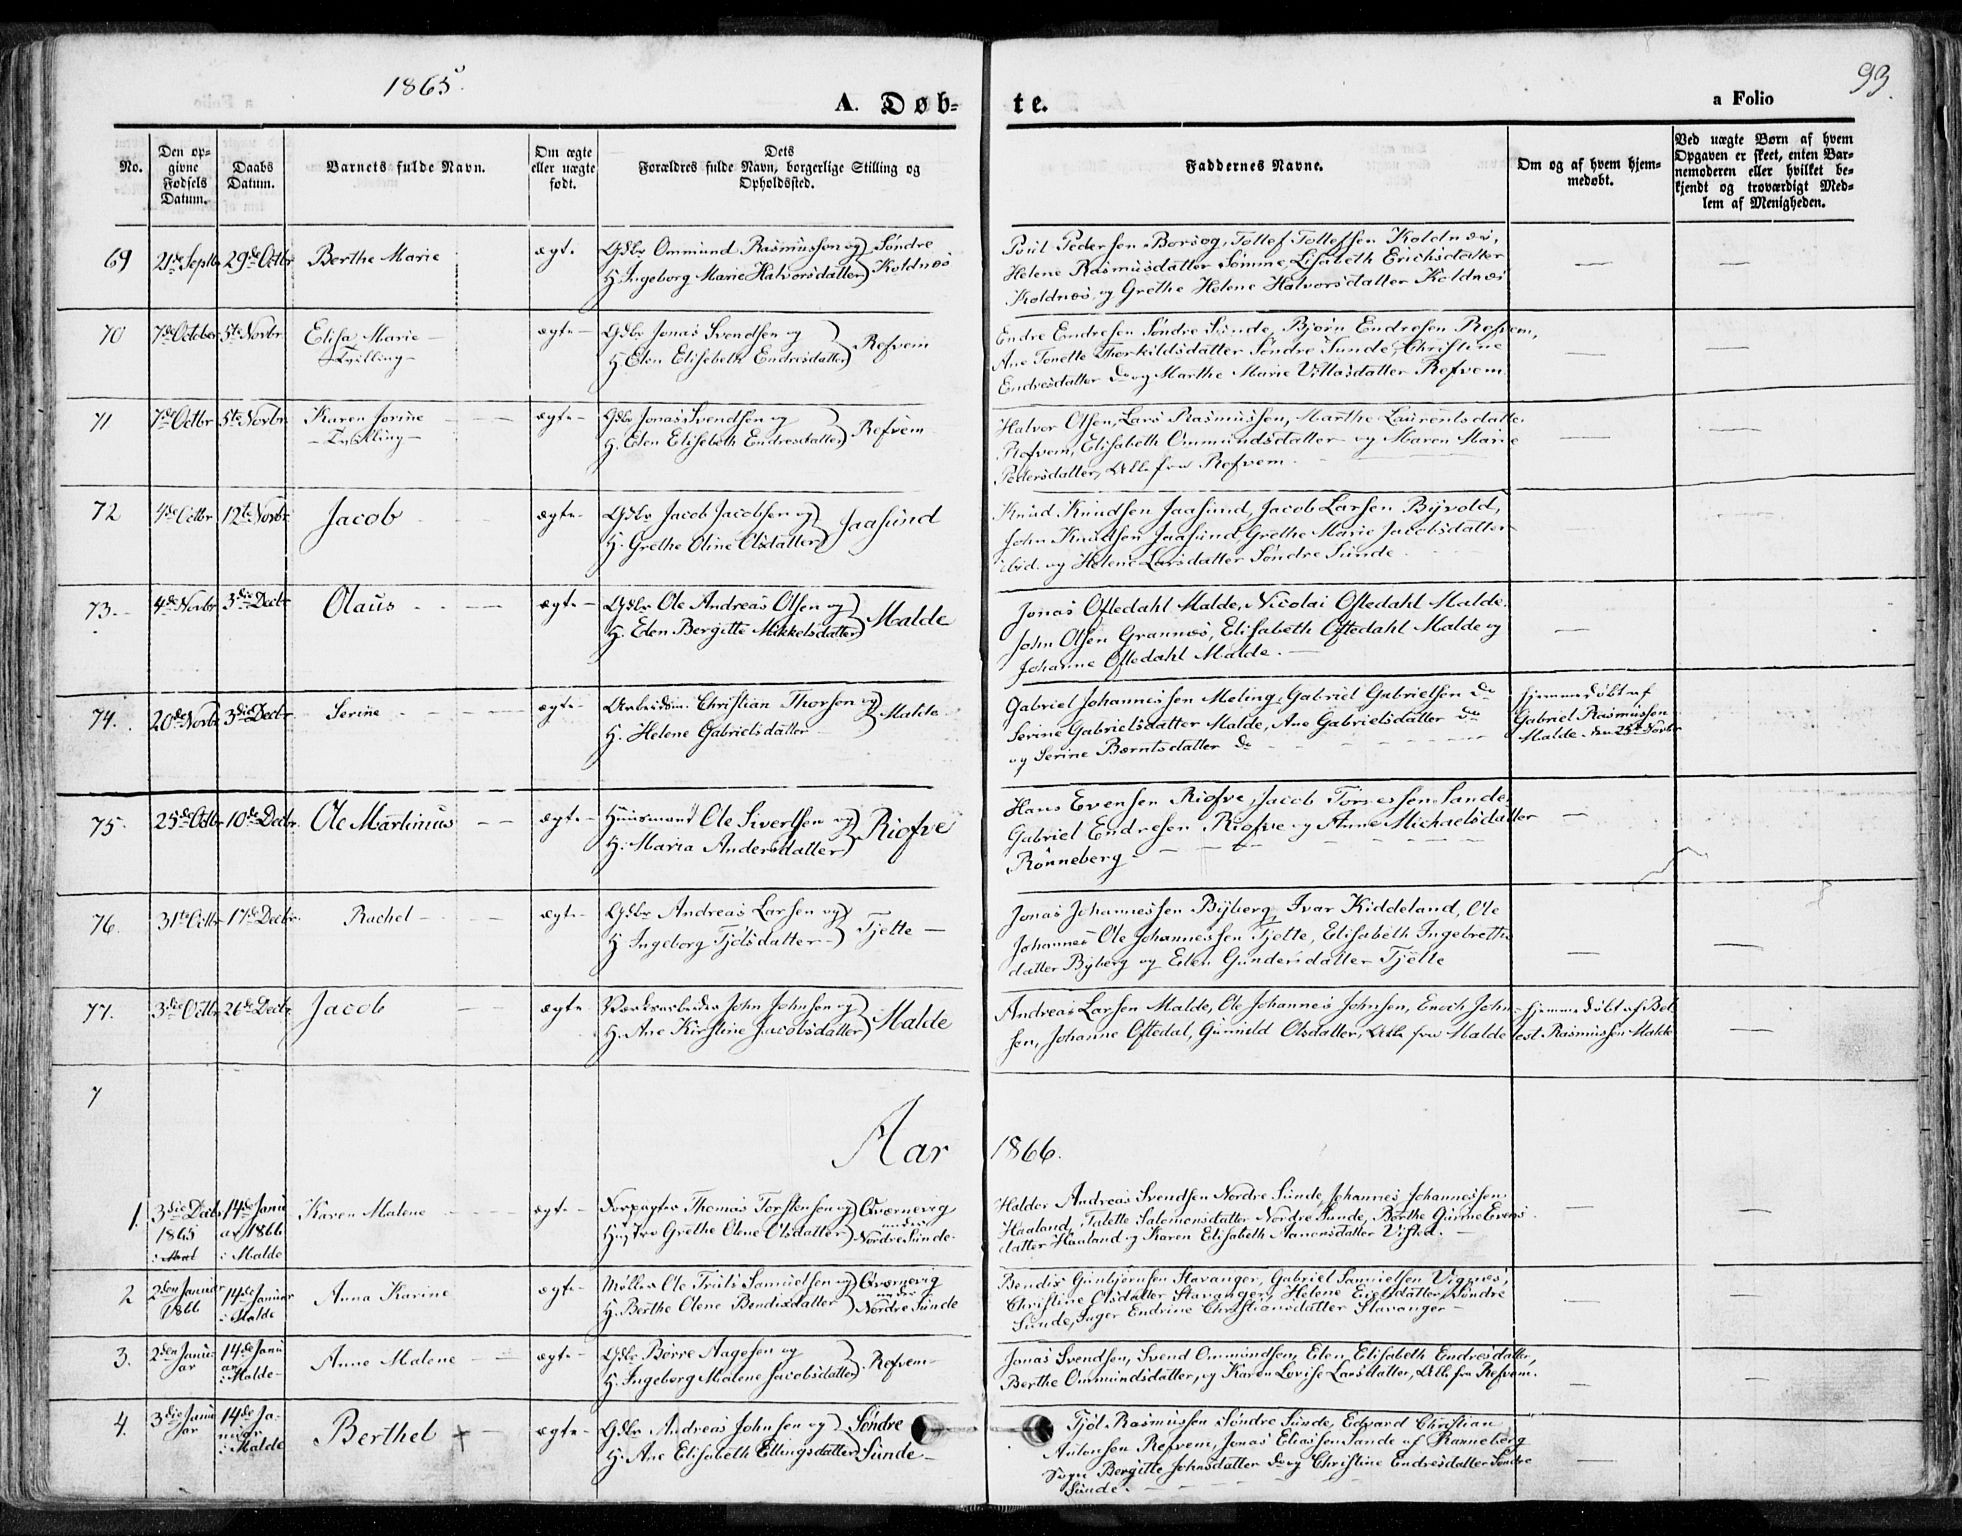 1865.
A. Døb-
te.
a Folio
93.
No.
Den op-
givne
Fødsels
Datum.
Daabs
Datum.
Barnets fulde Navn.
Om ægte
eller uægte
født.
Dets
Forældres fulde Navn, borgerlige Stilling og
Opholdssted.
Faddernes Navne.
Om og af hvem hjem-
medøbt.
Ved uægte Børn af hvem
Opgaven er skeet, enten Bar-
nemoderen eller hvilket be-
kjendt og troværdigt Med-
lem af Menigheden.
69 21de Septbr 29de Octbr Berthe Marie ægte Gdbr Ommund Rasmussen og Søndre
H. Ingeborg Marie Halvorsdatter Koldnæs
Poul Pedersen Borsøg, Tollef Tollefsen Koldnæs,
Helene Rasmusdatter Sømme, Lisabeth Erichsdatter
Koldnæs, og Grethe Helene Halvorsdatter Koldnæs
70 7de October 5te Novbr Elisa Marie ægte Gdbr Jonas Svendsen og
Tvilling H. Elen Elisebeth Endresdatter Refvem
Endre Endresen Søndre Sunde, Bjørn Endresen Refvem,
Ane Tonette Thorkildsdatter Søndre Sunde, Christine
Endresdatter do og Marthe Marie Villasdatter Refvem
71 7de Octbr 5te Novbr Karen Jorine ægte Gdbr Jonas Svendsen og
Tvilling H. Elen Elisebeth Endresdatter Refvem
Halvor Olsen, Lars Rasmussen, Marthe Laurentsdatter
Refvem, Elisabeth Ommundsdatter og Maren Marie
Pedersdatter, Alle fra Refvem.
72 4de Octbr 12te Novbr Jacob ægte Gdbr Jacob Jacobsen og
H. Grethe Oline Olsdatter Jaasund
Knud Knudsen Jaasund, Jacob Larsen Byvold,
John Knudsen Jaasund, Grethe Marie Jacobsdatter
ibid. og Helene Larsdatter Søndre Sunde.
73. 4de Novbr 3die Decbr Olaus ægte Gdbr Ole Andreas Olsen og
H. Elen Bergitte Mikkelsdatter Malde
Jonas Oftedahl Malde, Nicolai Oftedahl Malde.
John Olsen Grannæs, Elisabeth Oftedahl Malde og
Johanne Oftedahl Malde.
74. 20de Novbr 3die Decbr Serine ægte Arbeidsm. Christian Thorsen og
H. Helene Gabrielsdatter Malde
Gabriel Johannessen Meling, Gabriel Gabrielsen do
Serine Gabrielsdatter Malde, Ane Gabrielsdatter do
og Serine Berntsdatter do
hjemmedøbt af
Gabriel Rasmussen
Malde den 25de Novbr
75. 25de Octbr 10de Decbr. Ole Martinius ægte Huusmand Ole Sivertsen og
H. Maria Andersdatter Riofve
Hans Evensen Riofve, Jacob Torressen Sande
Gabriel Endresen Riofve og Anne Michaelsdatter
Rønneberg
76. 31te Octbr 17de Decbr. Rachel ægte Gdbr Andreas Larsen og
H. Ingeborg Tjølsdatter Tjelte
Jonas Johannessen Byberg, Ivar Kiddeland, Ole
Johannes Ole Johannessen Tjelte, Elisabeth Ingebretts
datter Byberg og Elen Gundersdatter Tjelte
77. 3die Octbr 26de Decbr. Jacob ægte Værksarbeider John Johnsen og
H. Ane Kirstine Jacobsdatter Malde
Andreas Larsen Malde, Ole Johannes Johnsen, Enoch John-
sen, Johanne Oftedal, Gunnild Olsdatter, Alle fra Malde
hjemmedøbt af Bel
lest Rasmussen Malde
7
Aar 1866.
1. 3die Decbr 14de Janu Karen Malene ægte Forpagter Thomas Torstensen og Qværnevig
1865 ar 1866 Hustro Grethe Olene Olsdatter under
i Malde Nordre Sunde.
Haldor Andreas Svendsen Nordre Sunde, Johannes Johannessen
Haaland, Talette Salomonsdatter Nordre Sunde, Berthe Gurine Evens
datter Haaland og Karen Elisabeth Aanensdatter Visted.
2 2den Januar 14de Januar Anna Karine ægte Møller Ole Truls Samuelsen og Qværnevig
1866 i Malde H. Berthe Olene Bendixdatter under
Nordre Sunde
Bendix Gunbjørnsen Stavanger, Gabriel Samuelsen Vignes,
Christine Olsdatter Stavanger, Helene Eielsdatter Søndre
Sunde, Inger Endrine Christiansdatter Stavanger
3. 2den Janu- 14de Janu Anne Malene ægte Gdbr Børre Aagesen og
ar ar
i Malde H. Ingeborg Malene Jacobsdatter Refvem
Jonas Svendsen, Svend Ommundsen, Elen Elisabeth Endresdatter,
Berthe Ommundsdatter, og Karen Lovise Larsdatter, Alle fra Refvem.
4. 3die Janu 14de Ja- Berthel + ægte Gdbr Andreas Johnsen og Søndre
ar nuar
i Malde H. Ane Elisabeth Ellingsdatter Sunde
Tjøl Rasmussen Søndre Sunde, Edvard Christian
Antonsen Refvem, Jonas Eliassen Sande af Ranneberg
Sogn Bergitte Johnsdatter do og Christine Endresdatter Søndre
Sunde.